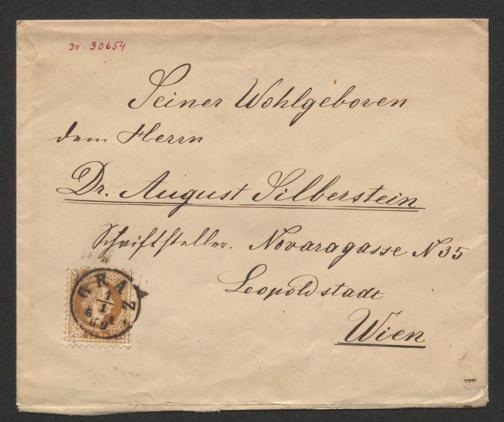 Iv. 30654
Seiner Wohlgeboren
dem Herrn
Dr. August Silberstein
Schriftsteller. Novaragasse N 35
Leopoldstadt
Wien